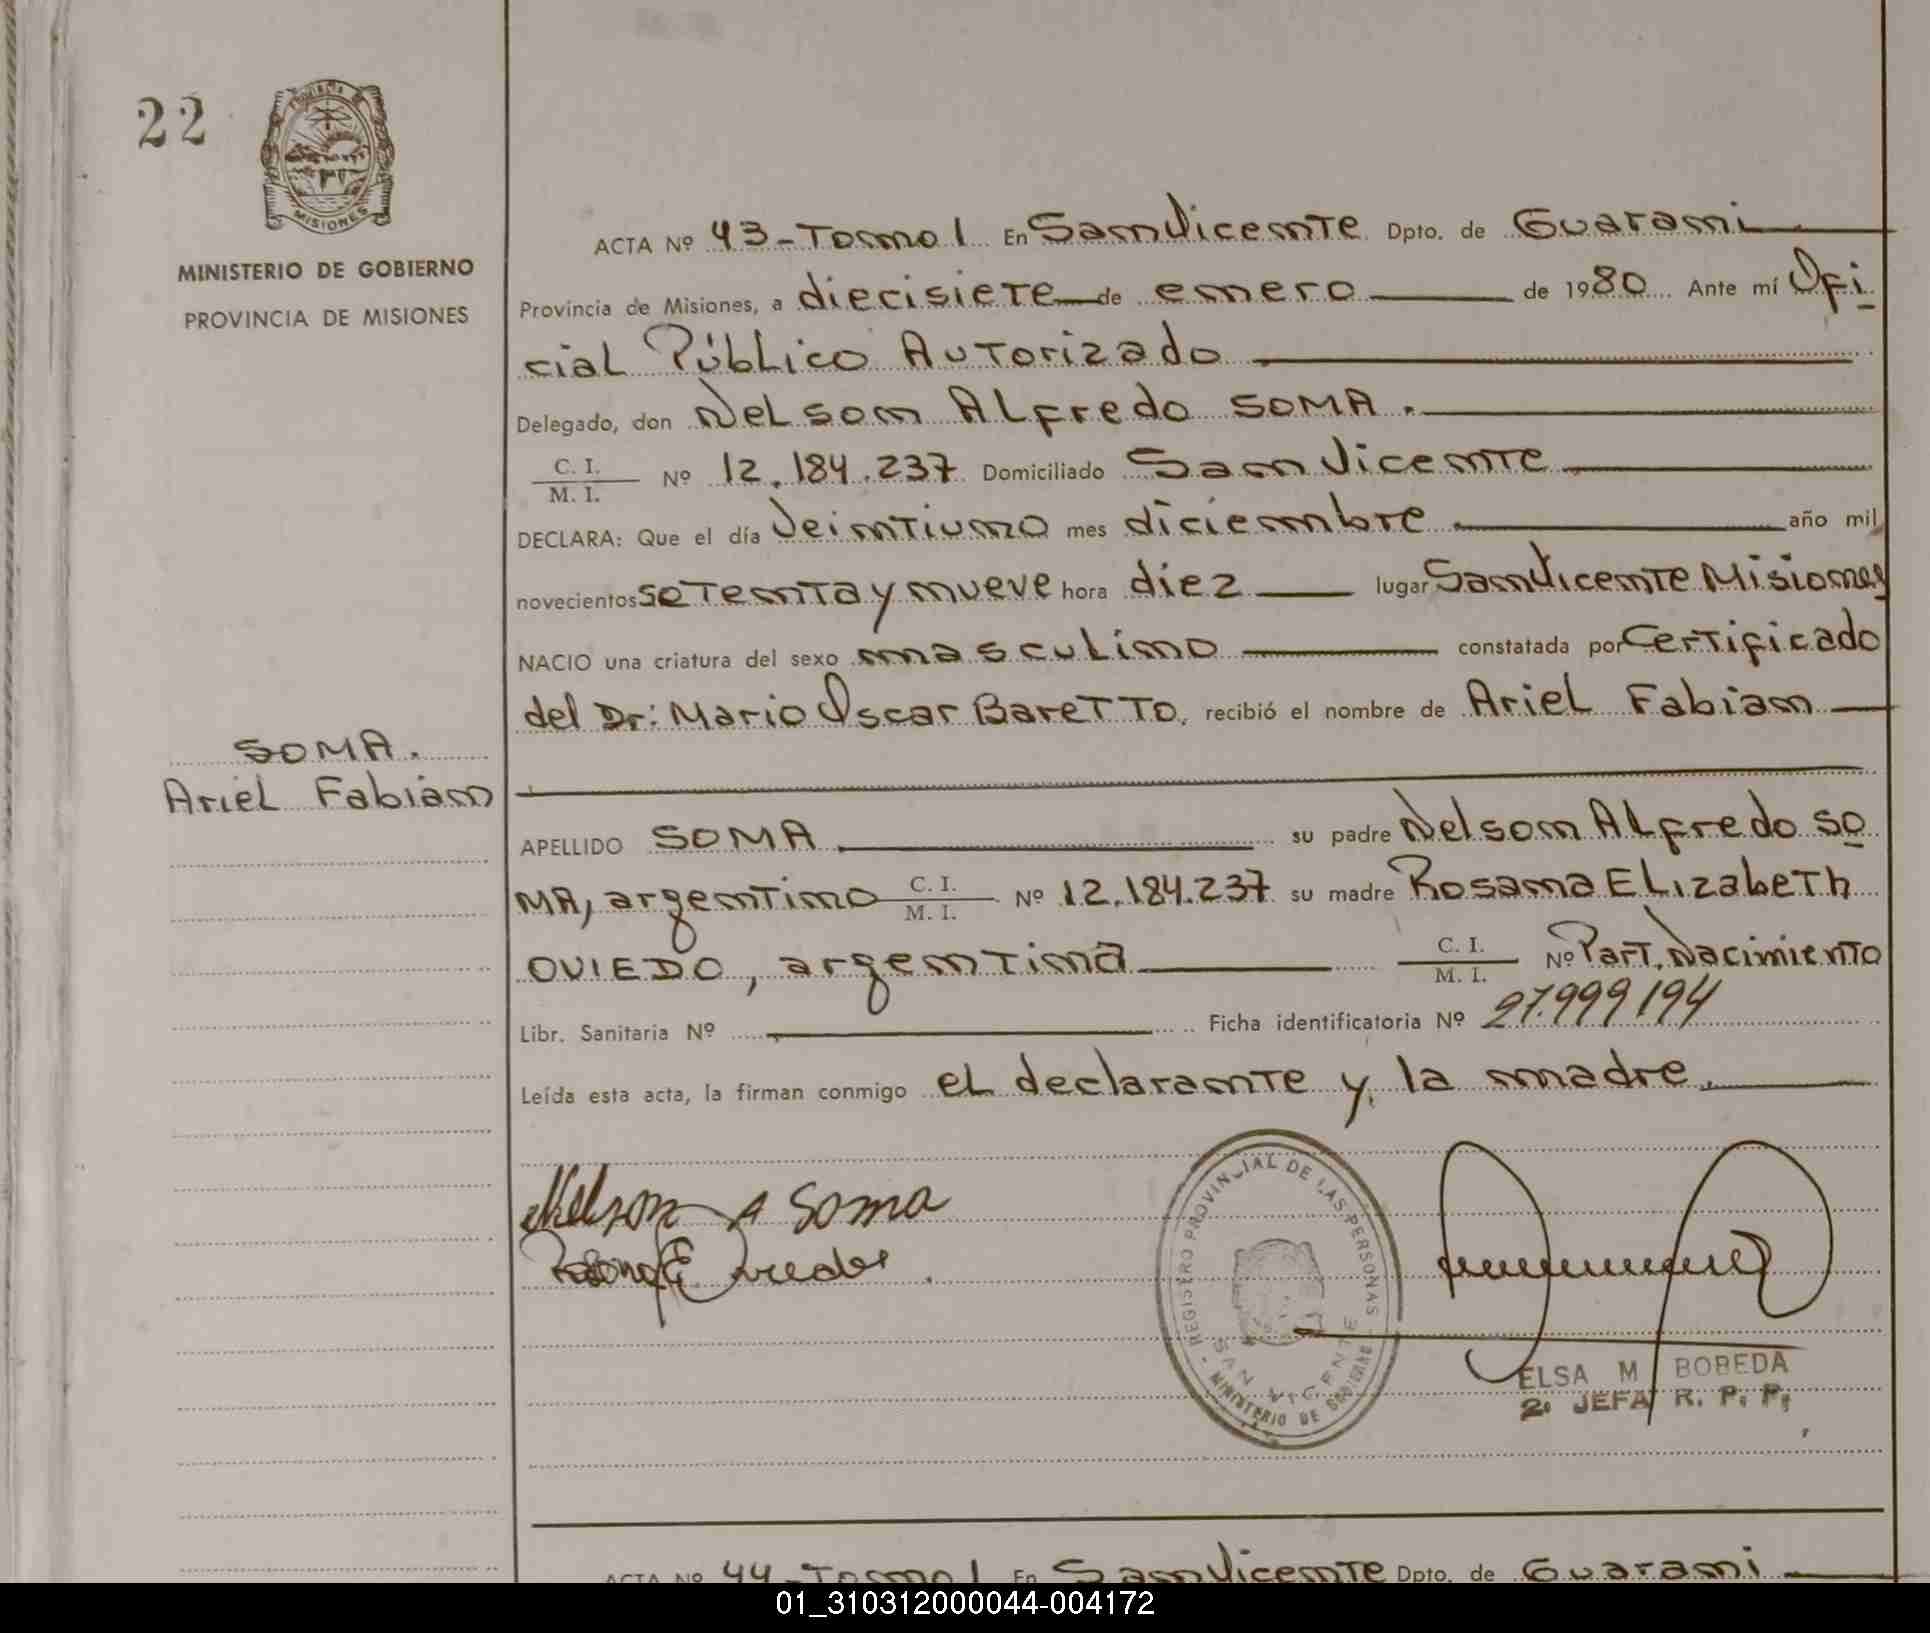 22
MISIONES
MINISTERIO DE GOBIERNO
PROVINCIA DE MISIONES
ACTA Nº 43-Tomo 1 En San Vicente Dpto. de Guarani
Provincia de Misiones, a diecisiete de enero de 1980 Ante mí Ofi
cial Público Autorizado
Delegado, don Nelson Alfredo SOMA.
C. I.
M. I. Nº 12.184.237 Domiciliado San Vicente
DECLARA: Que el día Veintiuno mes diciembre año mil
novecientos setenta y nueve hora diez lugar San Vicente Misiones
NACIO una criatura del sexo masculino constatada por Certificado
del Dr: Mario Oscar BareTTo, recibió el nombre de Ariel Fabian
SOMA.
Ariel Fabian
APELLIDO SOMA su padre Nelson Alfredo SO
MA, argentino C. I. M. I. Nº 12.184.237 su madre Rosana Elizabeth
OVIEDO, argentina C. I. M. I. Nº Part. Nacimiento
Libr. Sanitaria Nº Ficha identificatoria Nº 27.999194
Leída esta acta, la firman conmigo el declarante y la madre.
Nelson A Soma
REGISTRO PROVINCIAL DE LAS PERSONAS
SAN VICENTE
MINISTERIO DE GOBIERNO
ELSA M BOBEDA
2. JEFA R. P. P.
ACTA Nº 44-Tomo 1 En San Vicente Dpto. de Guarani
01_310312000044-004172